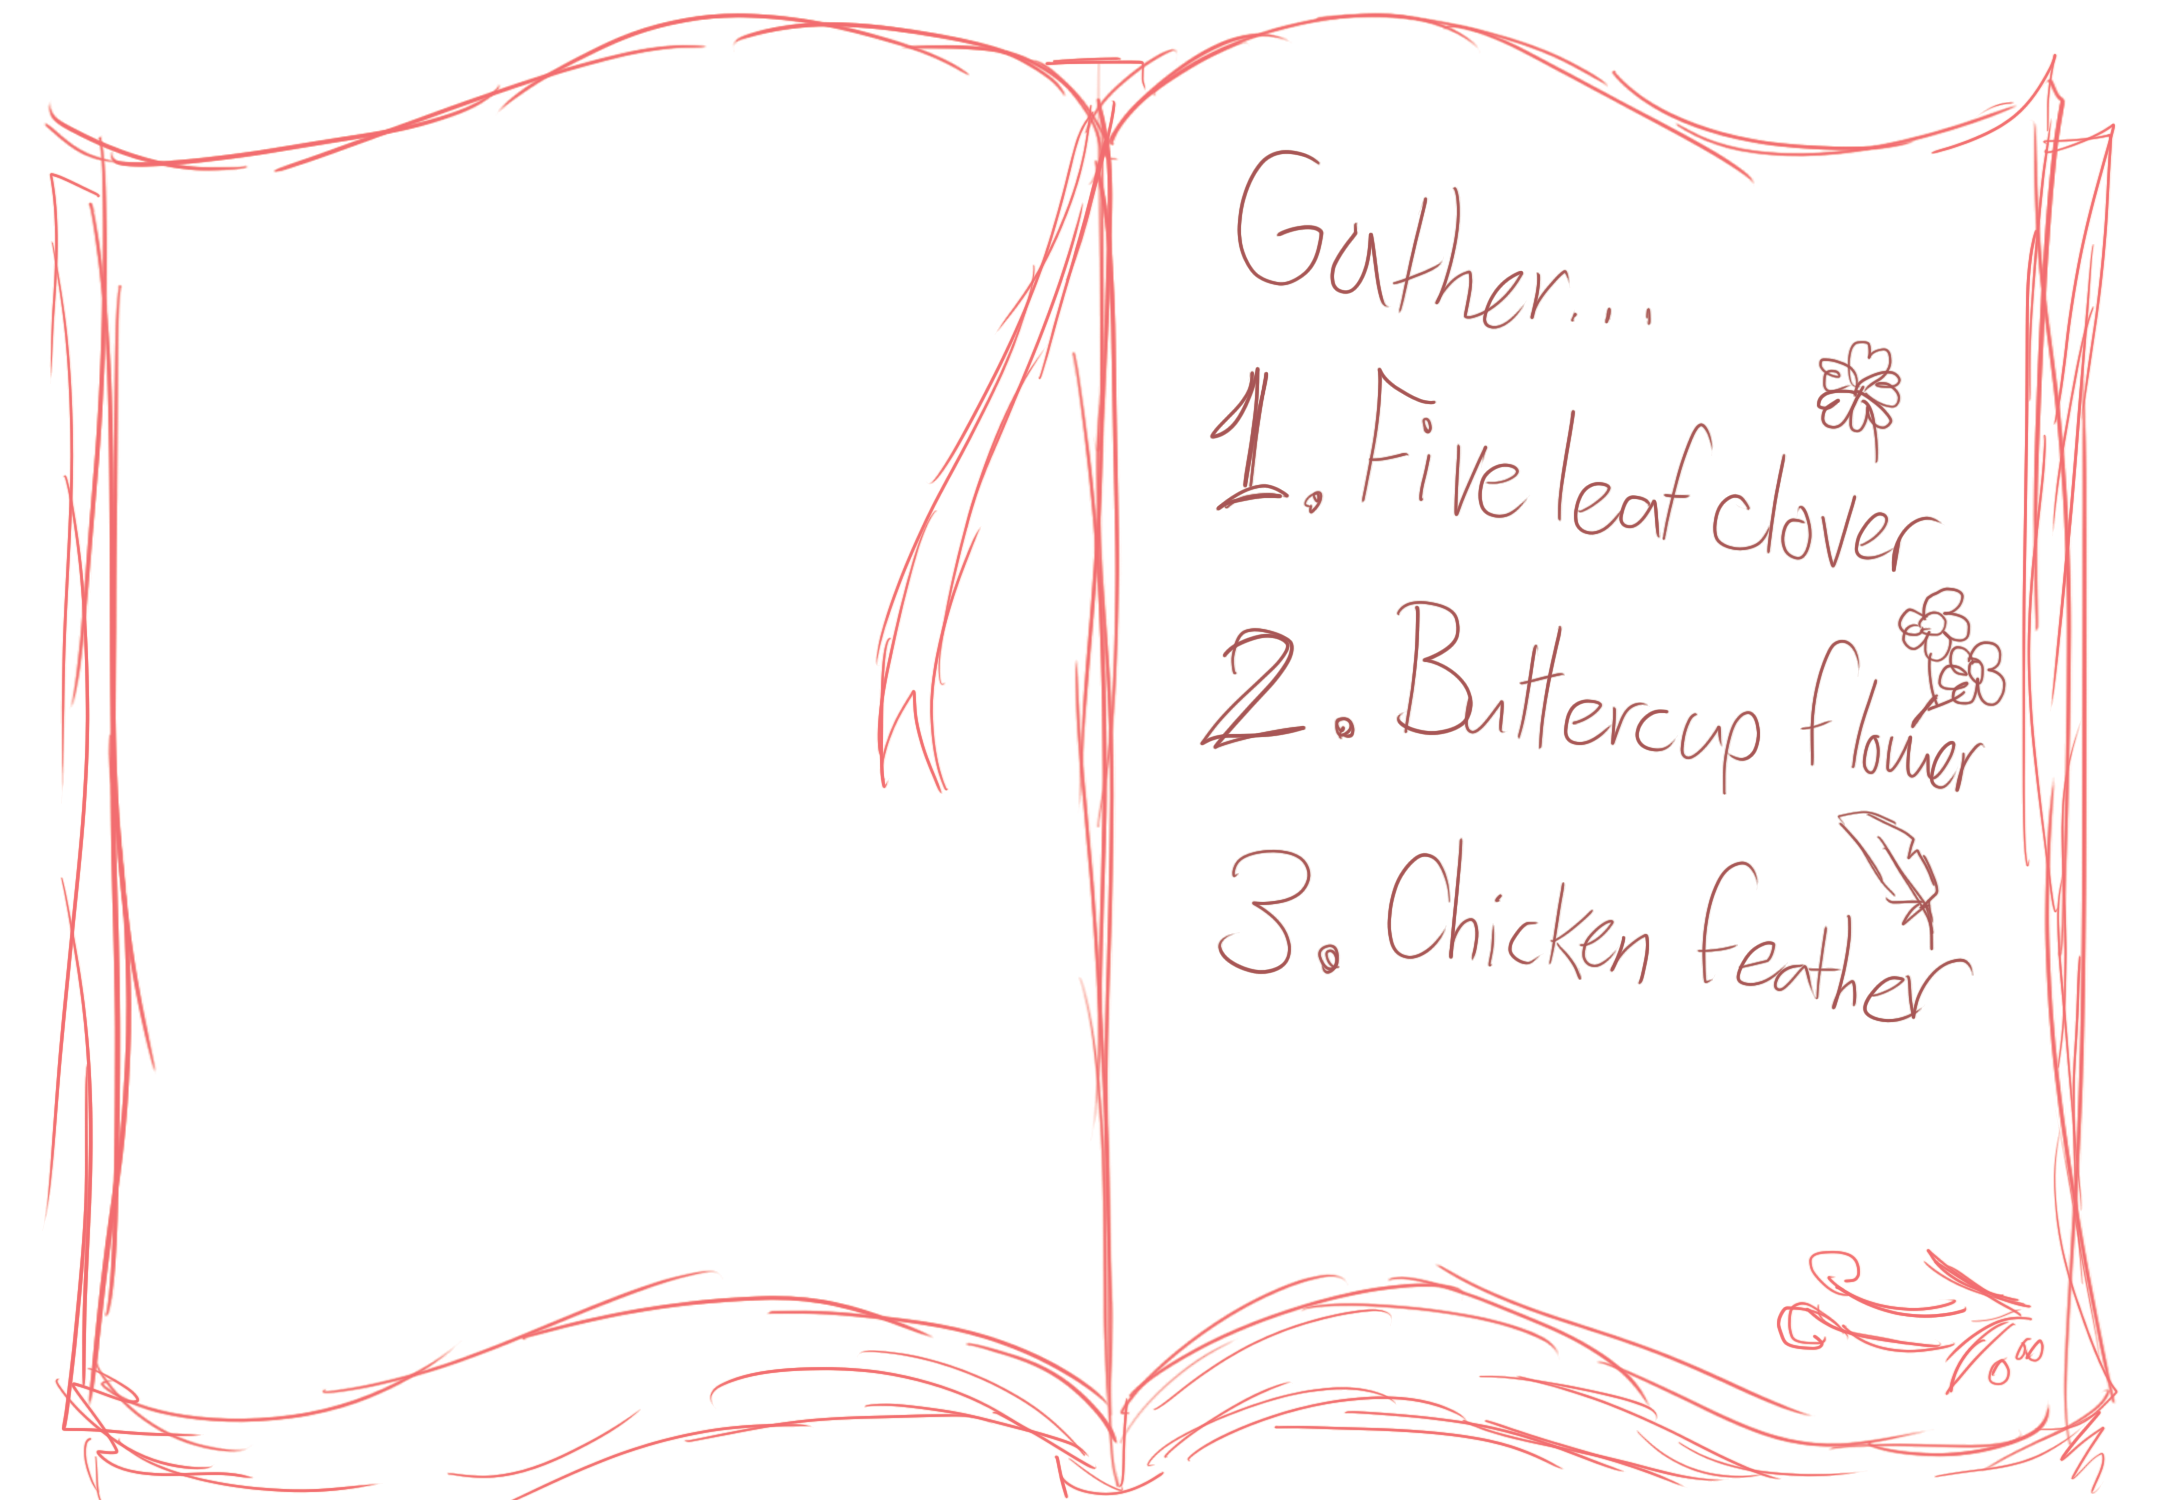 Gather...
1. Five leaf clover
2. Buttercup flower
3. Chicken feather